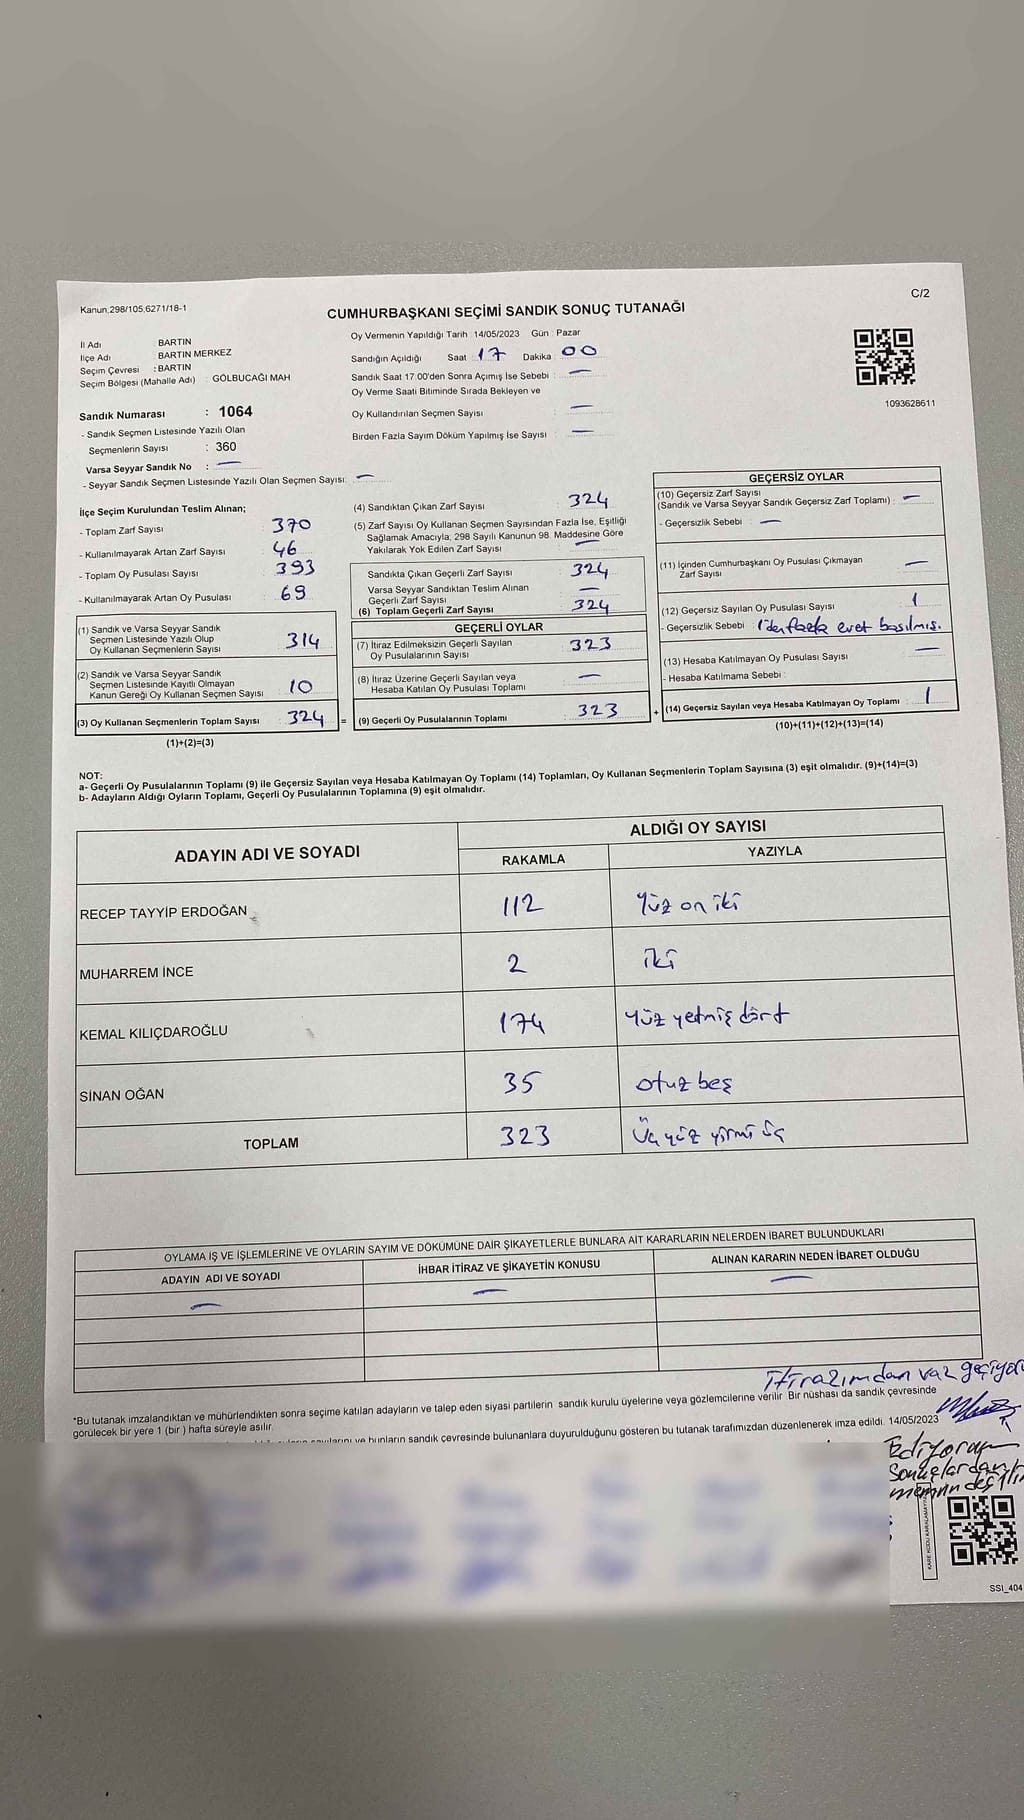 C/2
Kanun:298/105;6271/18-1
CUMHURBAŞKANI SEÇİMİ SANDIK SONUÇ TUTANAĞI
İl Adı : BARTIN
İlçe Adı : BARTIN MERKEZ
Seçim Çevresi : BARTIN
Seçim Bölgesi (Mahalle Adı) : GÖLBUCAĞI MAH
Sandık Numarası : 1064
- Sandık Seçmen Listesinde Yazılı Olan
Seçmenlerin Sayısı : 360
Varsa Seyyar Sandık No : —
- Seyyar Sandık Seçmen Listesinde Yazılı Olan Seçmen Sayısı: —
Oy Vermenin Yapıldığı Tarih : 14/05/2023 Gün : Pazar
Sandığın Açıldığı Saat : 17 Dakika : 00
Sandık Saat 17:00'den Sonra Açımış İse Sebebi : —
Oy Verme Saati Bitiminde Sırada Bekleyen ve
Oy Kullandırılan Seçmen Sayısı : —
Birden Fazla Sayım Döküm Yapılmış İse Sayısı : —
1093628611
İlçe Seçim Kurulundan Teslim Alınan;
- Toplam Zarf Sayısı : 370
- Kullanılmayarak Artan Zarf Sayısı : 46
- Toplam Oy Pusulası Sayısı : 393
- Kullanılmayarak Artan Oy Pusulası : 69
(1) Sandık ve Varsa Seyyar Sandık
Seçmen Listesinde Yazılı Olup
Oy Kullanan Seçmenlerin Sayısı 314
(2) Sandık ve Varsa Seyyar Sandık
Seçmen Listesinde Kayıtlı Olmayan
Kanun Gereği Oy Kullanan Seçmen Sayısı 10
(3) Oy Kullanan Seçmenlerin Toplam Sayısı : 324 =
(1)+(2)=(3)
(4) Sandıktan Çıkan Zarf Sayısı : 324
(5) Zarf Sayısı Oy Kullanan Seçmen Sayısından Fazla İse, Eşitliği
Sağlamak Amacıyla, 298 Sayılı Kanunun 98. Maddesine Göre
Yakılarak Yok Edilen Zarf Sayısı : —
Sandıkta Çıkan Geçerli Zarf Sayısı : 324
Varsa Seyyar Sandıktan Teslim Alınan
Geçerli Zarf Sayısı : —
(6) Toplam Geçerli Zarf Sayısı : 324
GEÇERLİ OYLAR
(7) İtiraz Edilmeksizin Geçerli Sayılan
Oy Pusulalarının Sayısı : 323
(8) İtiraz Üzerine Geçerli Sayılan veya
Hesaba Katılan Oy Pusulası Toplamı : —
(9) Geçerli Oy Pusulalarının Toplamı : 323 +
GEÇERSİZ OYLAR
(10) Geçersiz Zarf Sayısı
(Sandık ve Varsa Seyyar Sandık Geçersiz Zarf Toplamı) : —
- Geçersizlik Sebebi : —
(11) İçinden Cumhurbaşkanı Oy Pusulası Çıkmayan
Zarf Sayısı : —
(12) Geçersiz Sayılan Oy Pusulası Sayısı : 1
- Geçersizlik Sebebi : 1'den fazla evet basılmış.
(13) Hesaba Katılmayan Oy Pusulası Sayısı : —
- Hesaba Katılmama Sebebi :
(14) Geçersiz Sayılan veya Hesaba Katılmayan Oy Toplamı : 1
(10)+(11)+(12)+(13)=(14)
NOT:
a- Geçerli Oy Pusulalarının Toplamı (9) ile Geçersiz Sayılan veya Hesaba Katılmayan Oy Toplamı (14) Toplamları, Oy Kullanan Seçmenlerin Toplam Sayısına (3) eşit olmalıdır. (9)+(14)=(3)
b- Adayların Aldığı Oyların Toplamı, Geçerli Oy Pusulalarının Toplamına (9) eşit olmalıdır.
ADAYIN ADI VE SOYADI ALDIĞI OY SAYISI
RAKAMLA YAZIYLA
RECEP TAYYİP ERDOĞAN 112 Yüz on iki
MUHARREM İNCE 2 iki
KEMAL KILIÇDAROĞLU 174 Yüz yetmiş dört
SİNAN OĞAN 35 otuz beş
TOPLAM 323 Üç yüz yirmi üç
OYLAMA İŞ VE İŞLEMLERİNE VE OYLARIN SAYIM VE DÖKÜMÜNE DAİR ŞİKAYETLERLE BUNLARA AİT KARARLARIN NELERDEN İBARET BULUNDUKLARI
ADAYIN ADI VE SOYADI İHBAR İTİRAZ VE ŞİKAYETİN KONUSU ALINAN KARARIN NEDEN İBARET OLDUĞU
— — —
itirazımdan vaz geçiyorum
*Bu tutanak imzalandıktan ve mühürlendikten sonra seçime katılan adayların ve talep eden siyasi partilerin sandık kurulu üyelerine veya gözlemcilerine verilir. Bir nüshası da sandık çevresinde
görülecek bir yere 1 (bir ) hafta süreyle asılır.
bunların sandık çevresinde bulunanlara duyurulduğunu gösteren bu tutanak tarafımızdan düzenlenerek imza edildi. 14/05/2023
Ediyorum
Sonuçlardan
memnun değilim
SSI_404